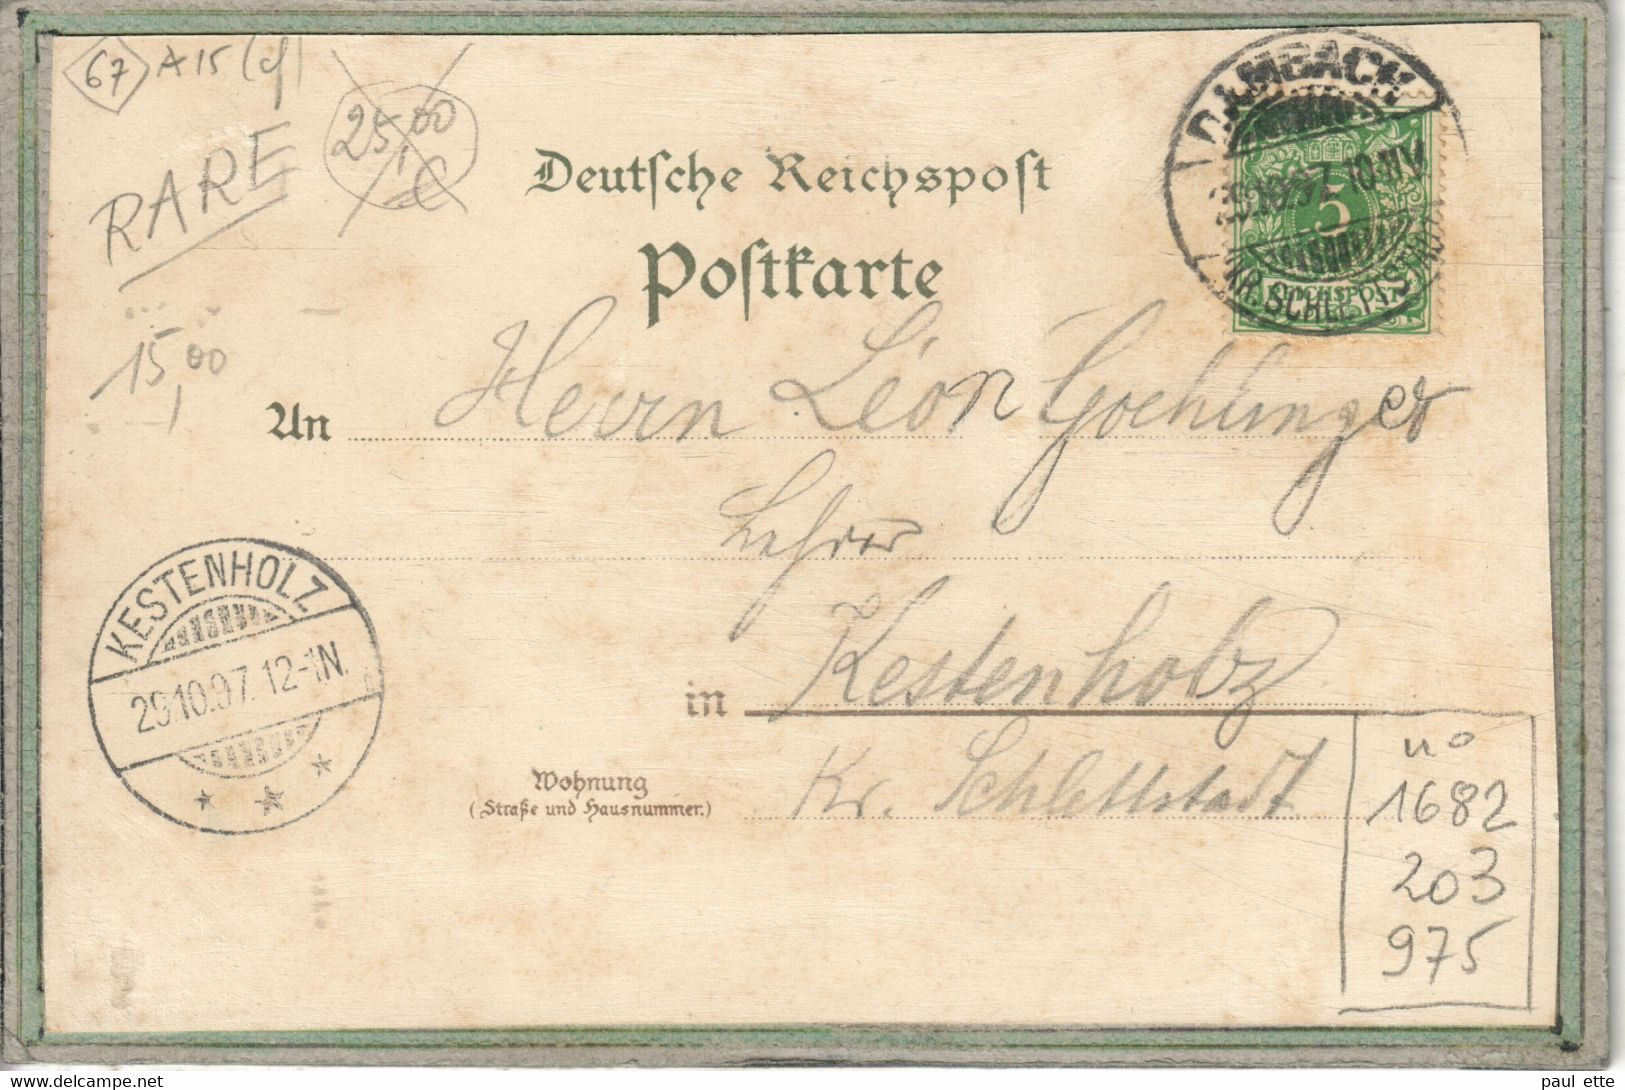 67 A15 (cf)
25,00 €
RARE
15,00
Deutsche Reichspost
Postkarte
DAMBACH
29.10.97. 10-11V.
(KR. SCHLETTSTADT)
5
REICHSPOST
An Herrn Léon Goehlinger
Lehrer
in Kestenholz
Kr. Schlettstadt
Wohnung
(Straße und Hausnummer.)
KESTENHOLZ
29.10.97. 12-1N.
* * *
no
1682
203
975
delcampe.net
paul ette